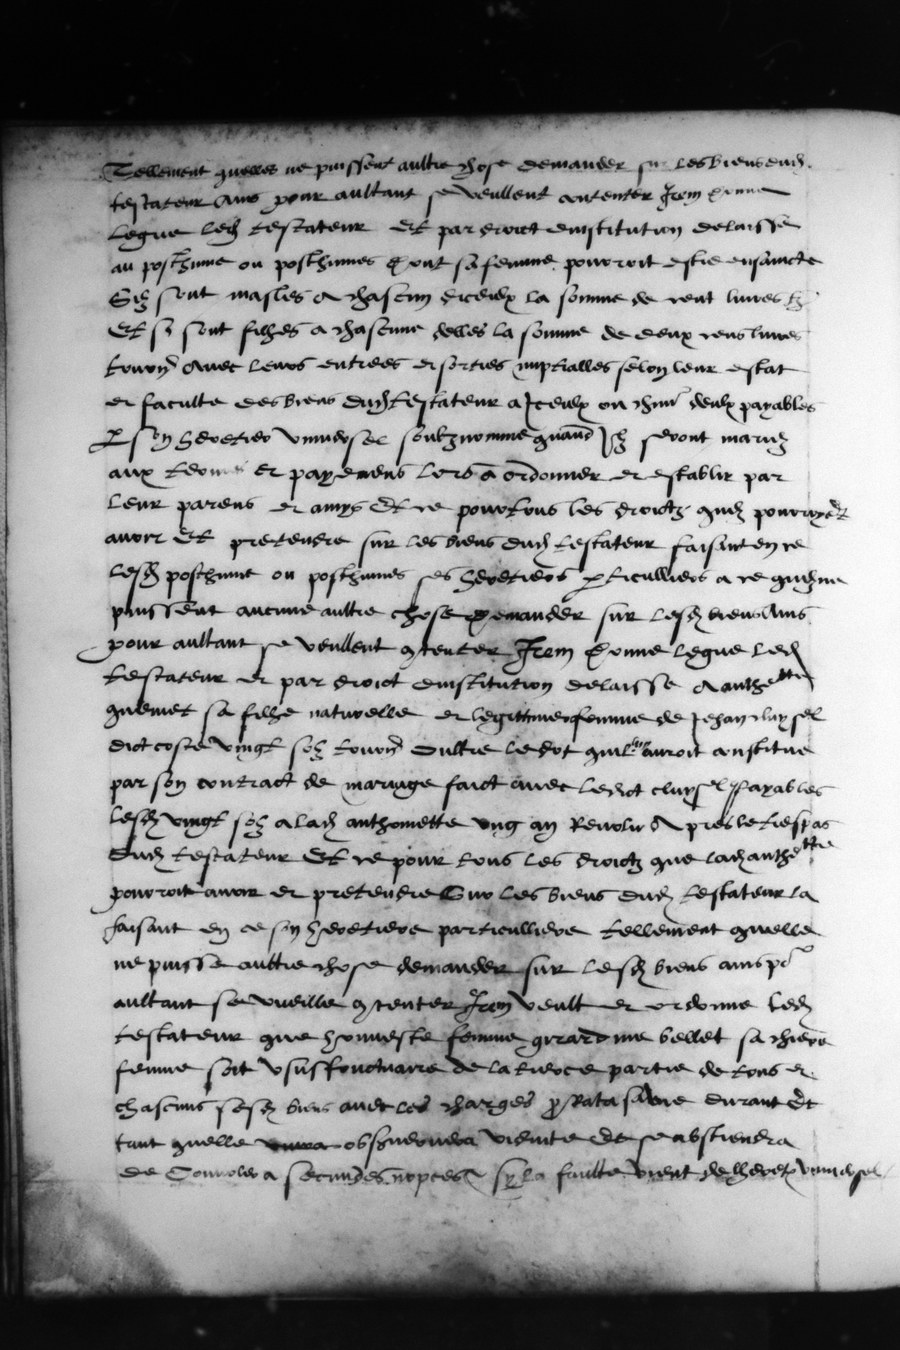 Tellement quelles ne puissent aultre chose demander sur les biens dud.
testateur Ains pour aultant se veullent contenter Item donne
legue led. testateur Et par droict dinstitution delaisse
au posthume ou posthumes dont sa femme pourroit estre ensaincte
Silz sont masles a chascun diceulx la somme de cent livres tz
Et si sont filhes a chascune delles la somme de deux cens livres
tourn avec leurs entrees et sorties nuptialles selon leur estat
et faculte des biens dud. testateur a Iceulx ou chun deulx payables
p son heretier universel soubznomme quand Ilz seront mariez
aux termes et payemens lors a ordonner et establir par
leur parens et amys Et ce pour tous les droictz quilz pourroyent
avoir Et pretendre sur les biens dud. testateur faisant en ce
lesd. posthume ou posthumes ses heretiers pticulliers a ce quilz ne
puissent aucune aultre chose demander sur lesd. biens Ains
pour aultant se veullent contenter Item donne legue led.
testateur et par droict dinstitution delaisse a anthoinette
quemet sa filhe naturelle et legittime femme de Jehan cluysel
dict coste vingt solz tourn Oultre le dot quil luy auroit constitue
par son contract de mariage faict avec ledict cluysel payables
lesd. vingt solz a lad. anthoinette ung an Revolu Apres le trespas
dud. testateur Et ce pour tous les droictz que lad. anthoinette
pourroit avoir et pretendre Sur les biens dud. testateur la
faisant en ce son heretiere particulliere tellement quelle
ne puisse aultre chose demander sur lesd. biens ains pr
aultant se vueille contenter Item veult et ordonne led.
testateur que honneste femme girardine bellet sa chiere
femme soit usuffructuaire de la tierce partie de tous et
chascuns sesd. biens avec les charges p Rata sa vie durant Et
tant quelle observera viduite Et se abstiendra
de Convoler a secundes nopces Sy la faulte vient de lheretr universel